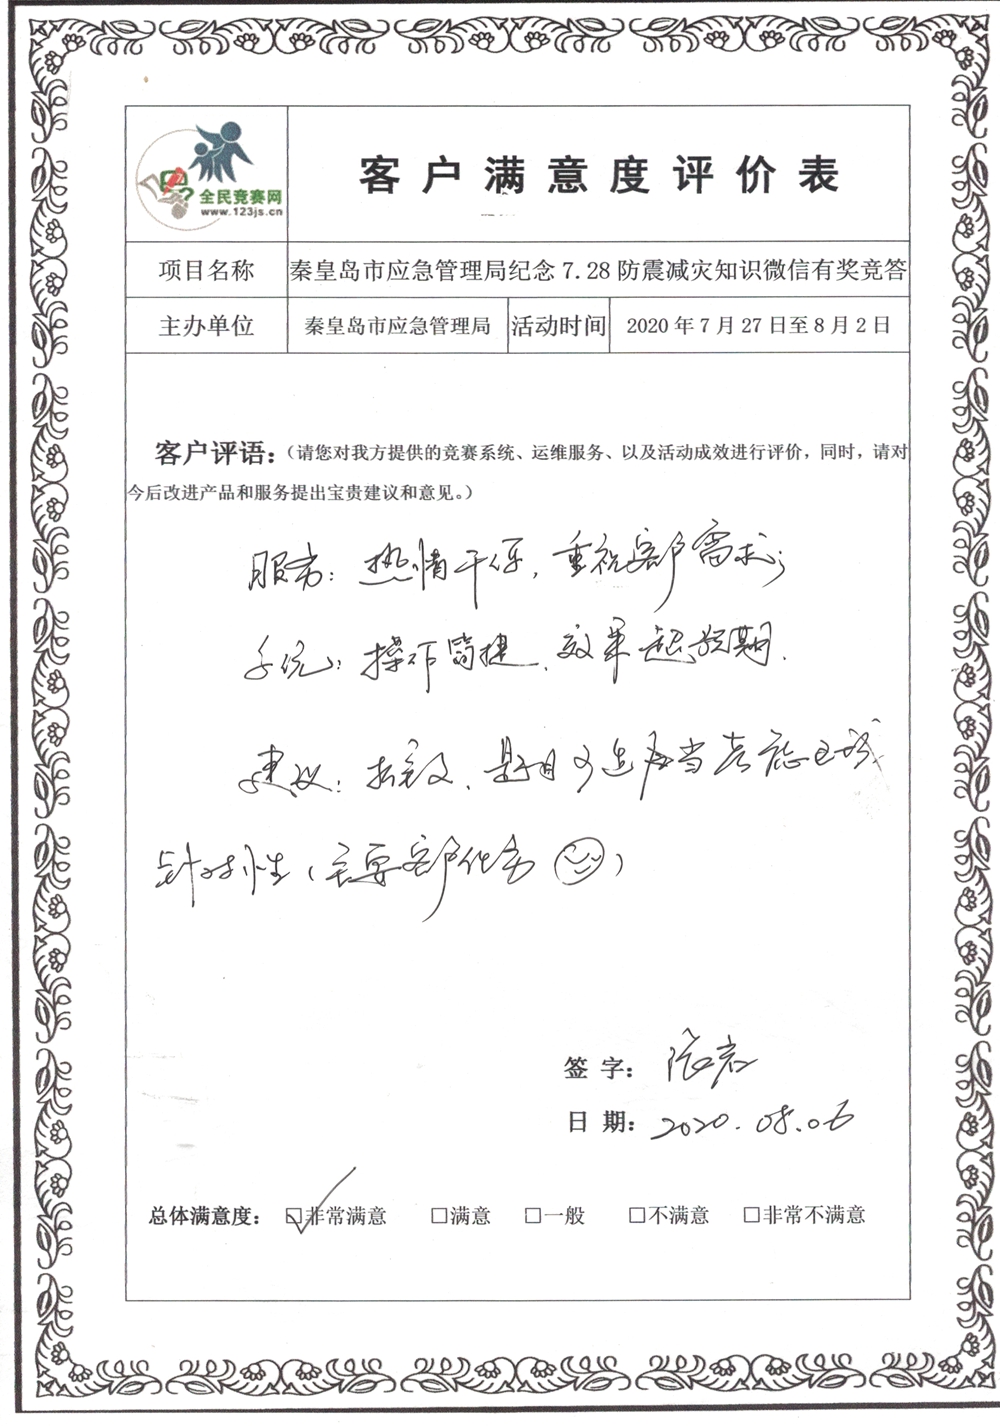 全民竞赛网
www.123js.cn
客户满意度评价表
项目名称 秦皇岛市应急管理局纪念7.28防震减灾知识微信有奖竞答
主办单位 秦皇岛市应急管理局 活动时间 2020年7月27日至8月2日
客户评语：（请您对我方提供的竞赛系统、运维服务、以及活动成效进行评价，同时，请对
今后改进产品和服务提出宝贵建议和意见。）
服务：热情干练，重视客户需求；
系统：操作简捷、效果超预期．
建议：题目可适当
针对性（主要客户任务）
签 字：
日 期：2020.08.06
总体满意度： ☑非常满意 □满意 □一般 □不满意 □非常不满意